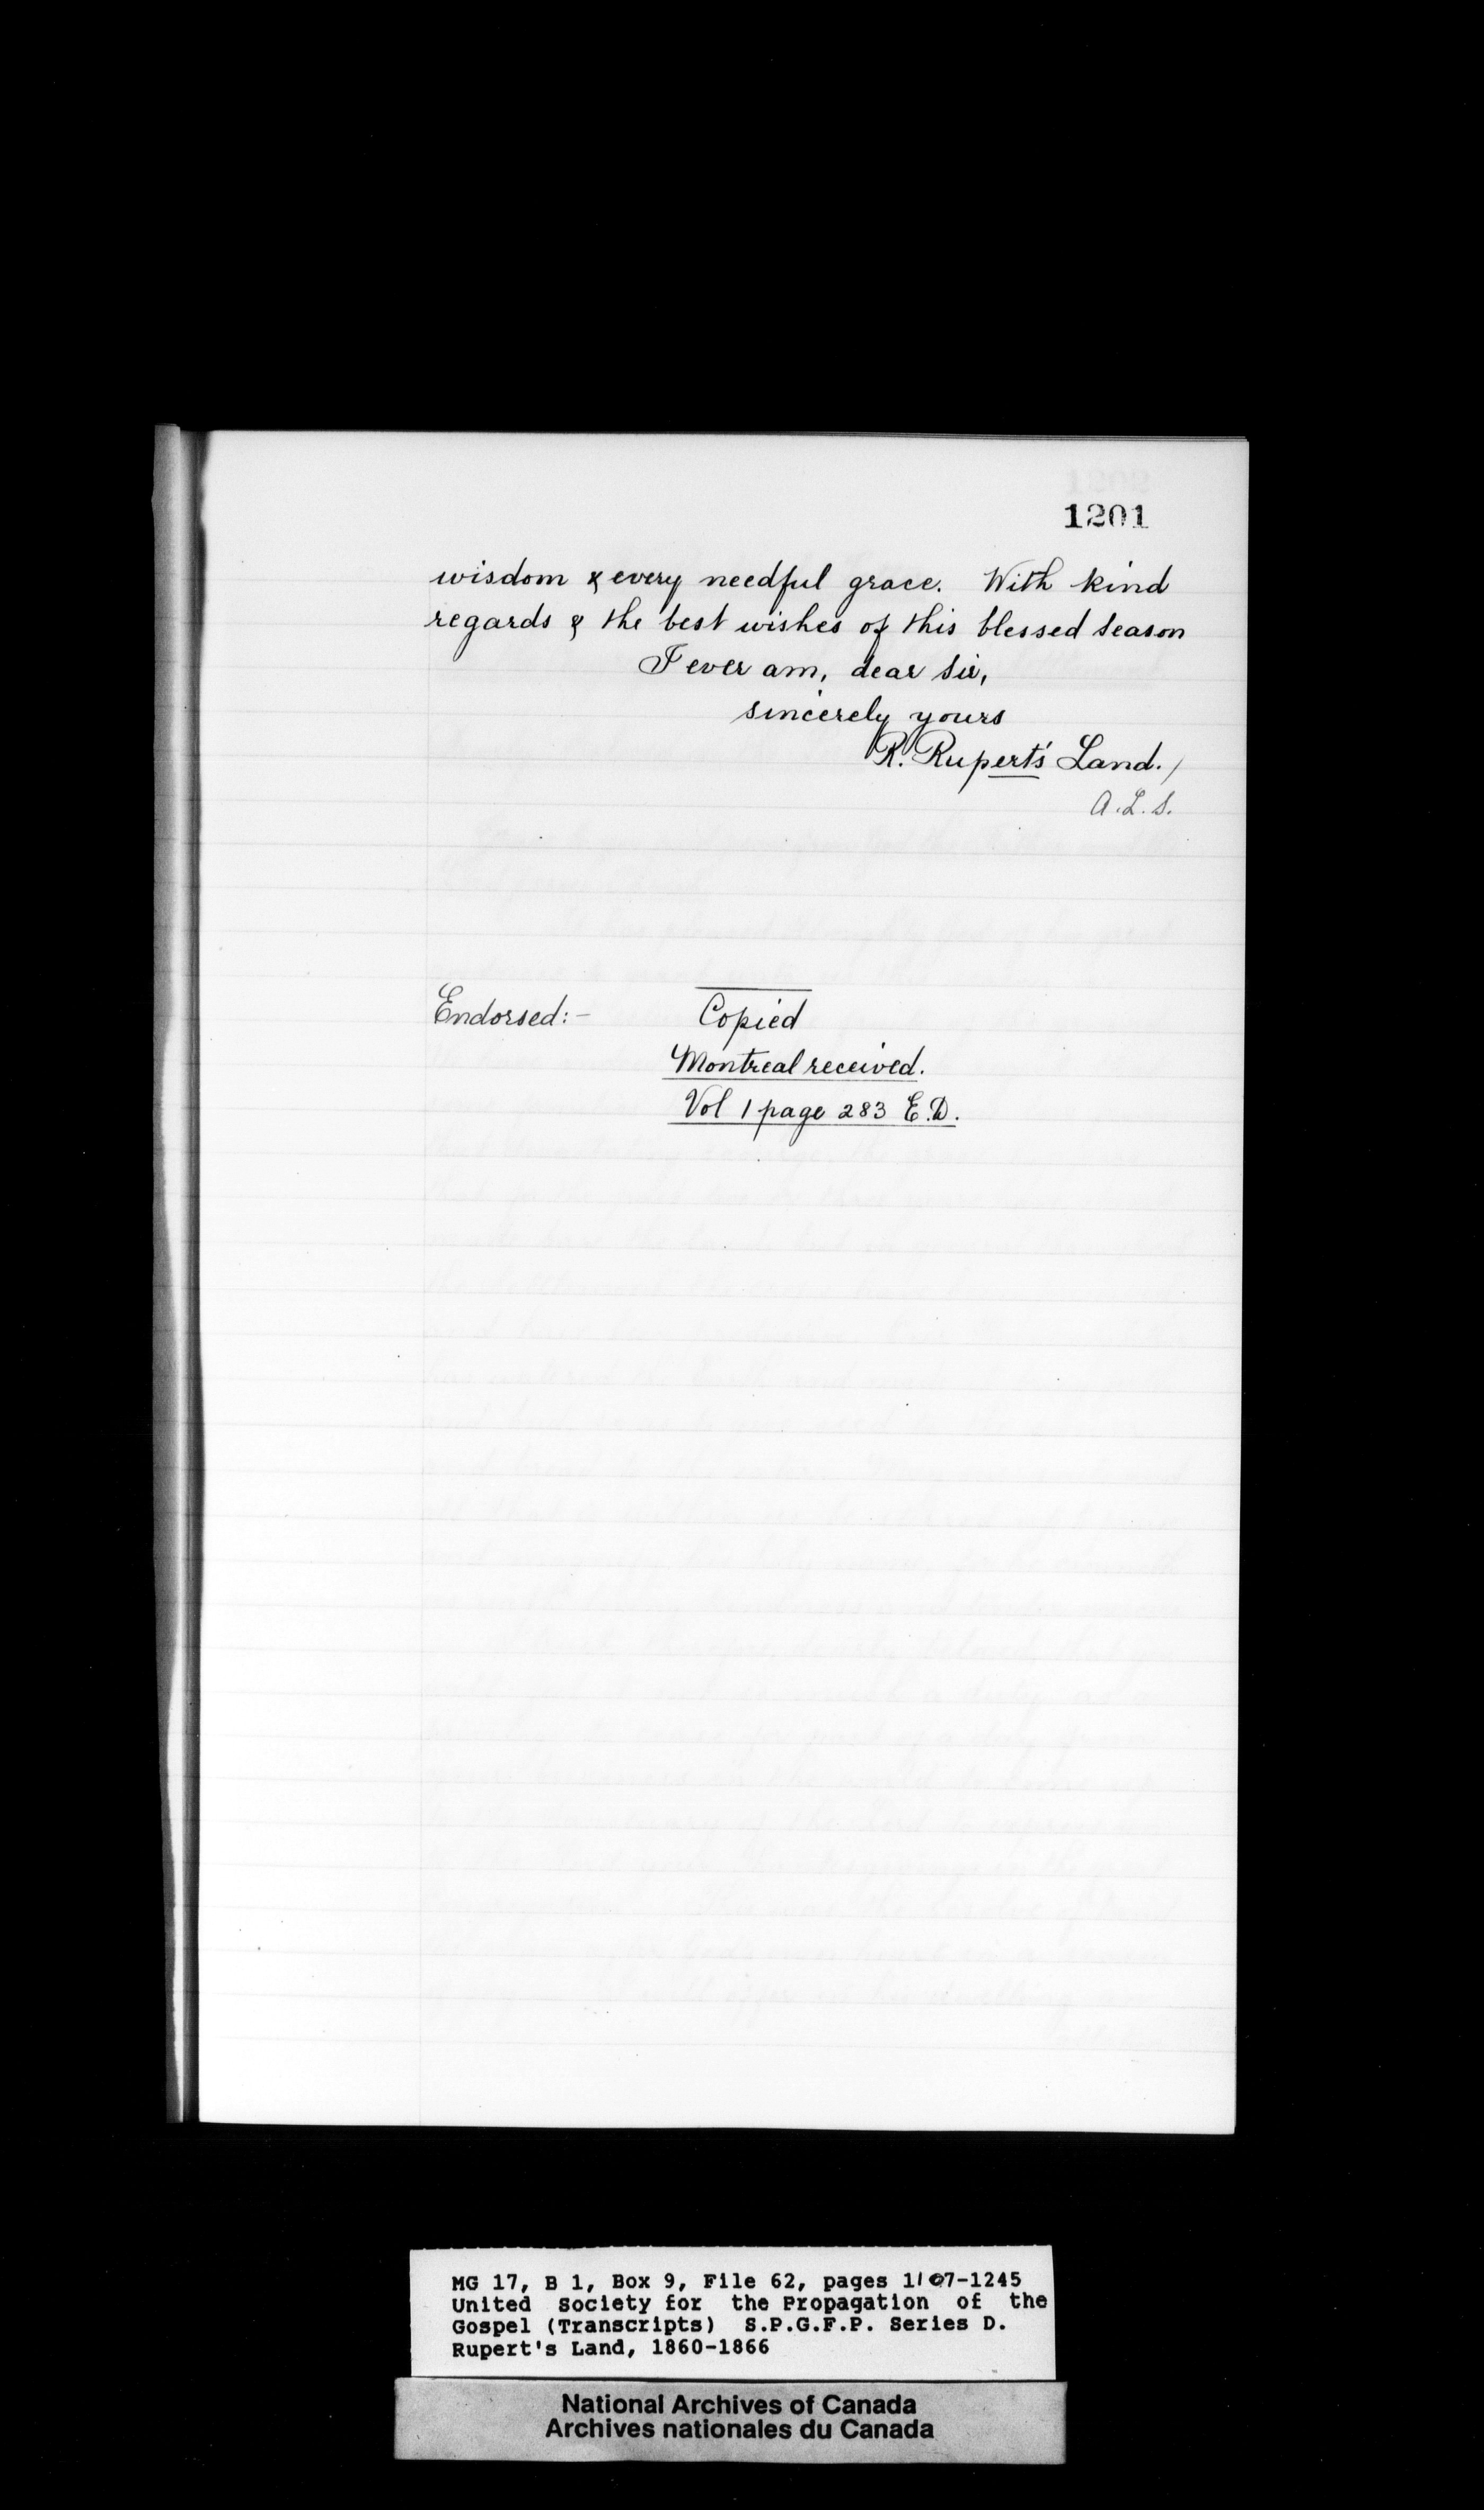 1201
wisdom & every needful grace. With kind
regards & the best wishes of this blessed season
I ever am, dear Sir,
sincerely yours
R. Rupert's Land./
A.L.S.
Endorsed:- Copied
Montreal received.
Vol 1 page 283 E.D.
MG 17, B 1, Box 9, File 62, pages 1107-1245
United Society for the Propagation of the
Gospel (Transcripts) S.P.G.F.P. Series D.
Rupert's Land, 1860-1866
National Archives of Canada
Archives nationales du Canada